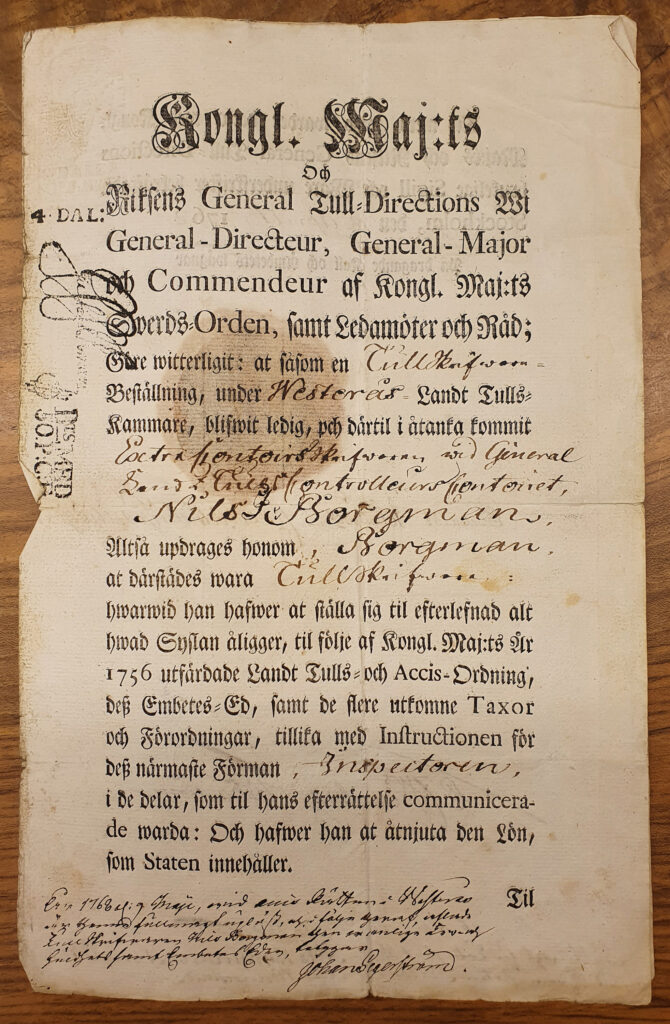 Kongl. Maj:ts
Och
4 DAL:
Riksens General Tull-Directions Wi
General-Directeur, General-Major
och Commendeur af Kongl. Maj:ts
Swerds-Orden, samt Ledamöter och Råd;
Göre witterligit: at såsom en Tullskrifware-
Beställning, under Westerås Landt Tulls-
Kammare, blifwit ledig, och därtil i åtanka kommit
Extra Contoirs Skrifwaren wid General
Landt Tulls Controlleurs Contoiret,
Nils Borgman,
Altså updrages honom, Borgman,
at därstädes wara Tullskrifware:
hwarwid han hafwer at ställa sig til efterlefnad alt
hwad Syslan åligger, til följe af Kongl. Maj:ts År
1756 utfärdade Landt Tulls- och Accis-Ordning,
deß Embetes-Ed, samt de flere utkomne Taxor
och Förordningar, tillika med Instructionen för
deß närmaste Förman, Inspectoren,
i de delar, som til hans efterrättelse communicera-
de warda: Och hafwer han at åtnjuta den Lön,
som Staten innehåller.
Til
1768 d. 9 Maji, wid Rätten i Westerås
är denna fullmagt upläst, och i följe
Tullskrifwaren Nils Borgman
samt Embetes Eden, betygar
Johan Segerström.